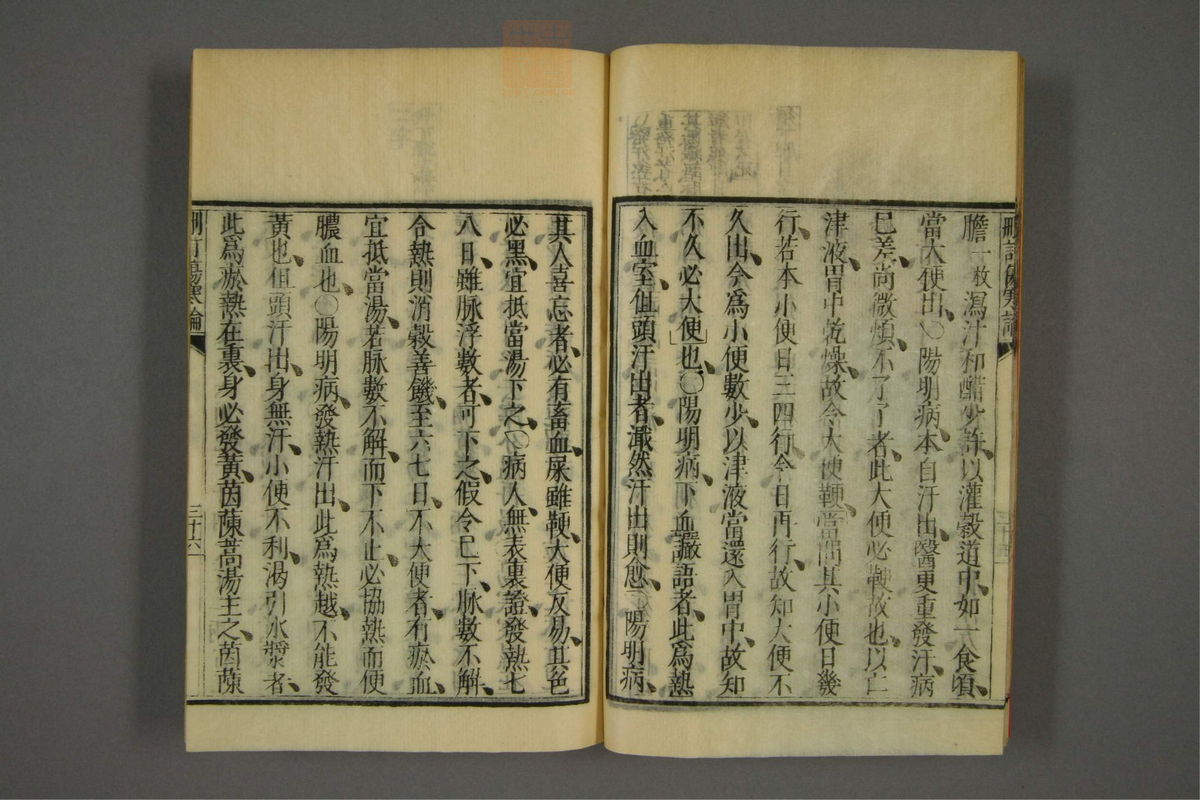 膽一枚瀉汁和醋少許以灌穀道中如一食頃
當大便出〇陽明病本自汗出醫更重發汗病
已差尚微煩不了了者此大便必鞕故也以亡
津液胃中乾燥故令大便鞕當問其小便日幾
行若本小便日三四行今日再行故知大便不
久出今爲小便數少以津液當還入胃中故知
不久必大便也〇陽明病下血讝語者此爲熱
入血室但頭汗出者濈然汗出則愈〇陽明病
其人喜忘者必有畜血屎雖鞕大便反易其色
必黑宜抵當湯下之〇病人無表裏證發熱七
八日雖脉浮數者可下之假令已下脉數不解
合熱則消穀善饑至六七日不大便者有瘀血
宜抵當湯若脉數不解而下不止必協熱而便
膿血也〇陽明病發熱汗出此爲熱越不能發
黃也但頭汗出身無汗小便不利渴引水漿者
此爲瘀熱在裏身必發黃茵蔯蒿湯主之茵蔯
刪訂傷寒論
三十六